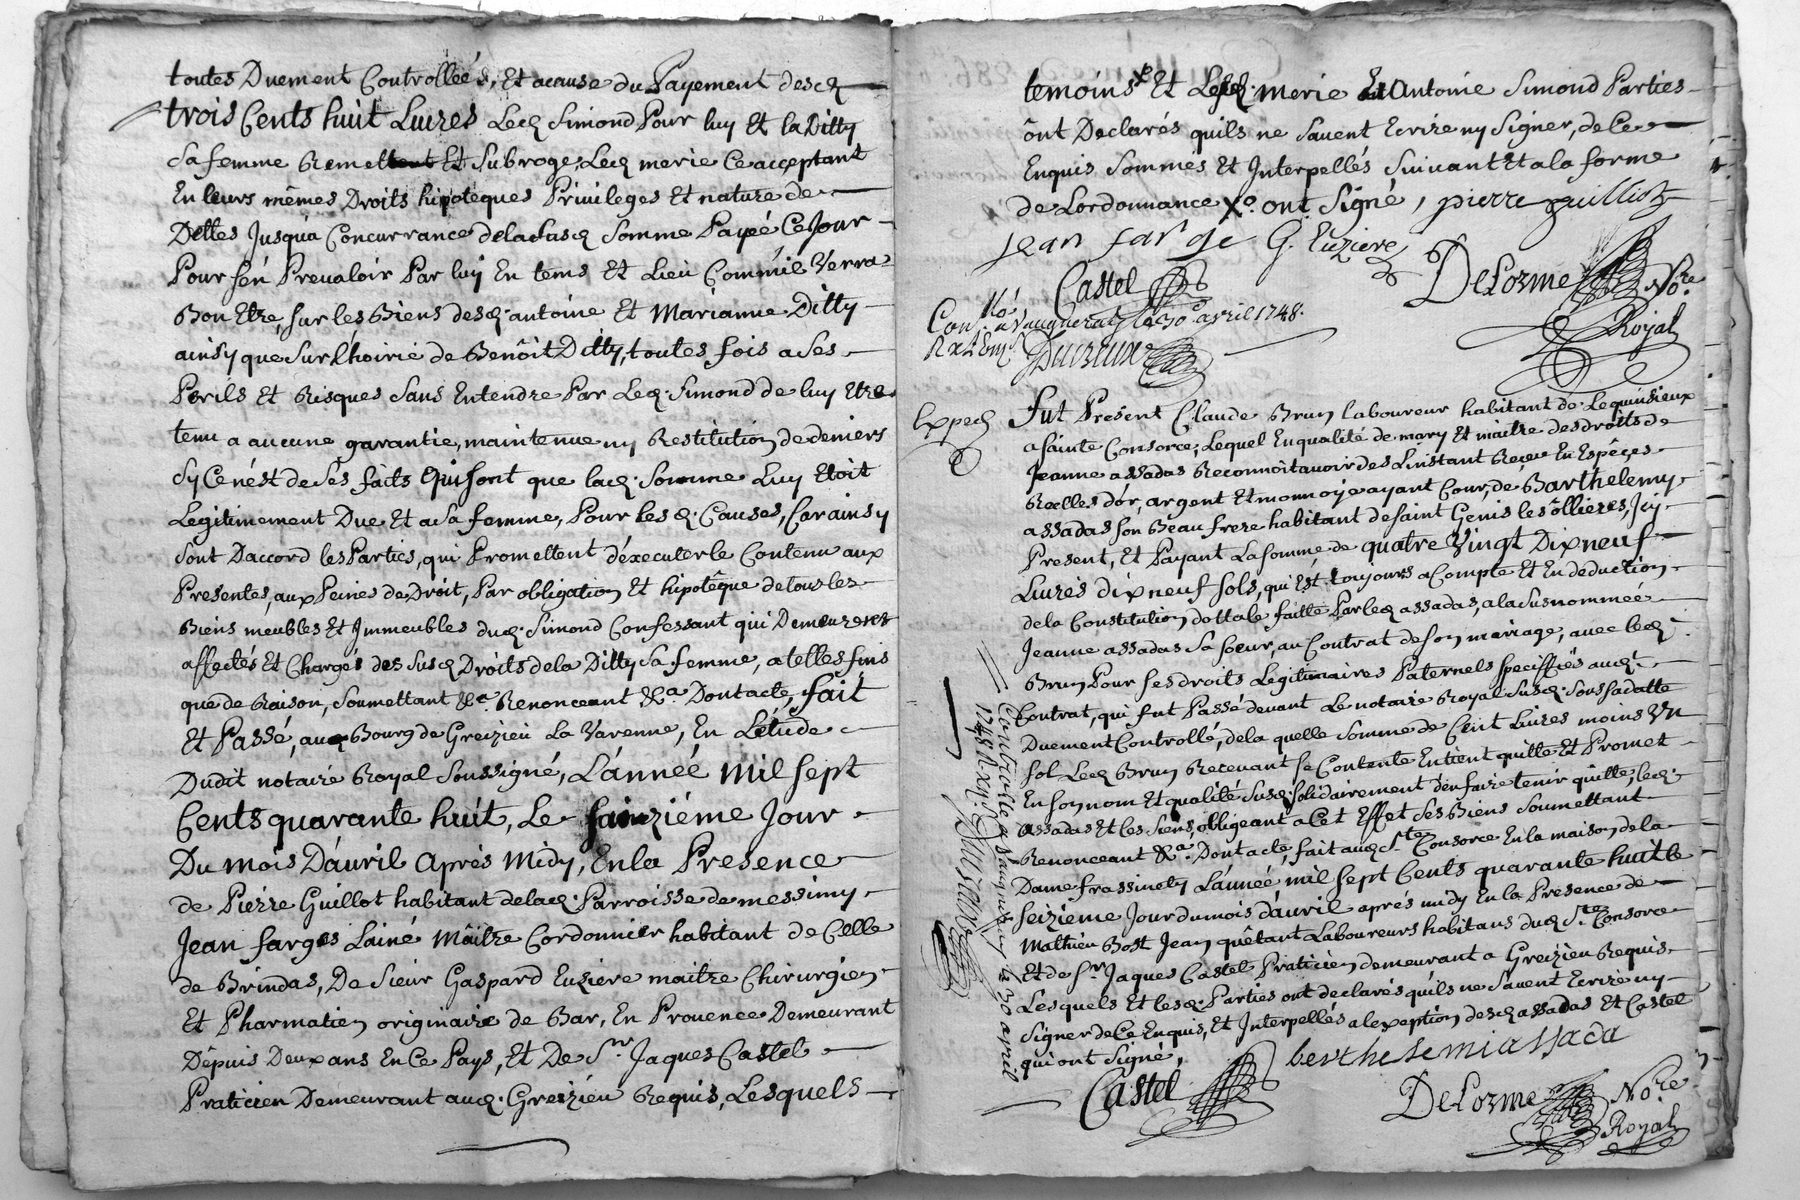 toutes Duement Controlleés, Et acause du Payement desd.
trois Cents huit Livres Led Simond Pour luy Et la Ditty
Sa femme Remet Et Subroge, Led merie Ce acceptant
En leurs mêmes Droits hipoteques Privileges Et nature de
Dettes Jusqu'a Concurrance de la Susd Somme Payéé Ce Jour
Pour s'en Prevaloir Par luy En tems Et Lieu Comme il Verra
Bon Etre, sur les Biens desd. antoine Et Marianne Ditty
ainsy que Sur L'hoirie de Benôit Ditty, toutes fois a Ses
Perils Et Risques Sans Entendre Par Led. Simond de luy Etre
tenu a aucune garantie, maintenue ny Restitution de deniers
Sy Ce n'ést de Ses faits Qui sont que lad. Somme Luy Etoit
Legitimement Due Et a Sa femme, Pour les d. Causes, Car ainsy
Sont D'accord les Parties, qui Promettent d'éxecuter le Contenu aux
Presentes, aux Peines de Droit, Par obligation Et hipotêque de tous les
Biens meubles Et Immeubles dud. Simond Confessant qui Demeureront
affectés Et Chargés des Susd Droits de la Ditty Sa femme, a telles fins
que de Raison, Soumettant &a. Renonceant &a. Dont acte, fait
Et Passé, aud Bourg de Greizieu La Varenne, En L'étude
Dudit notaire Royal Soussigné, L'année Mil Sept
Cents quarante huit, Le Seizième Jour
Du mois D'avril Aprés Midy, En la Presence
de Pierre Guillot habitant de lad. Parroisse de messimy
Jean farges L'ainé Maître Cordonnier habitant de Celle
de Brindas, De Sieur Gaspard Euziere maitre Chirurgien
Et Pharmatien originaire de Bar, En Provence Demeurant
Dépuis Deux ans En Ce Pays, Et De Sr. Jaques Castel
Praticien Demeurant aud. Greizieu Requis, Lesquels
temoins Et Lesd. merie Antoine Simond Parties
ônt Declarés qu'ils ne Savent Ecrire ny Signer, de Ce
Enquis Sommés Et Interpellés Suivant Et a la forme
de L'ordonnance Xo. ont Signé, pierre guilliot
jean farge G. Euziere
Castel DeLorme No.re
Royal
Con.llé a Vaugneray le 30e avril 1748.
Ducreux
Exped
Fut Present Claude Brun laboureur habitant de Lequinsieux
a Sainte Consorce, Lequel En qualité de mary Et maitre des droits de
Jeanne assadas Reconnoit avoir des L'instant Reçeu En Espéçes
Reelles d'or, argent Et monnoye ayant Cour, de Barthelemy
assadas Son Beau frere habitant de Saint Genis les ôllieres, Icy
Present, Et Payant La Somme de quatre Vingt Dix neuf
Livres dix neuf sols, qui Est toujours a Compte Et En deduction
de la Constitution dottale faitte Par led assadas, a la Susnommée
Jeanne assadas Sa Soeur, au Contrat de Son mariage, avec led.
Brun Pour Ses droits Legitimaires Paternels Speciffiés aud.
Contrat, qui fut Passé devant Le notaire Royal Susd. Sous Sa datte
Duement Controllé, de la quelle Somme de Cent Livres moins Un
Sol Led Brun Recevant Se Contente En tient quitte Et Promet
En Son nom Et qualité Susd. Solidairement d'en faire tenir quitte, led.
assadas Et les Siens, obligeant a Cet Effet Ses Biens Soumettant
Renonceant &a. Dont acte, fait aud Ste. Consorce En la maison de la
Dame frassinety L'année mil Sept Cents quarante huit Le
Seizieme Jour du mois d'avril aprés midy En la Presence de
Mathieu Bost Jean quêtant Laboureurs habitans dud Ste. Consorce
Et de Sr. Jaques Castel Praticien demeurant a Greizieu Requis
Lesquels Et les d. Parties ont declarés qu'ils ne Savent Ecrire ny
Signer de Ce Enquis, Et Interpellés a l'exeption desd assadas Et Castel
qui ont Signé,
berthelemi assada
Castel DeLorme No.re
Royal
Controllé a Vaugneray le 30 avril
1748